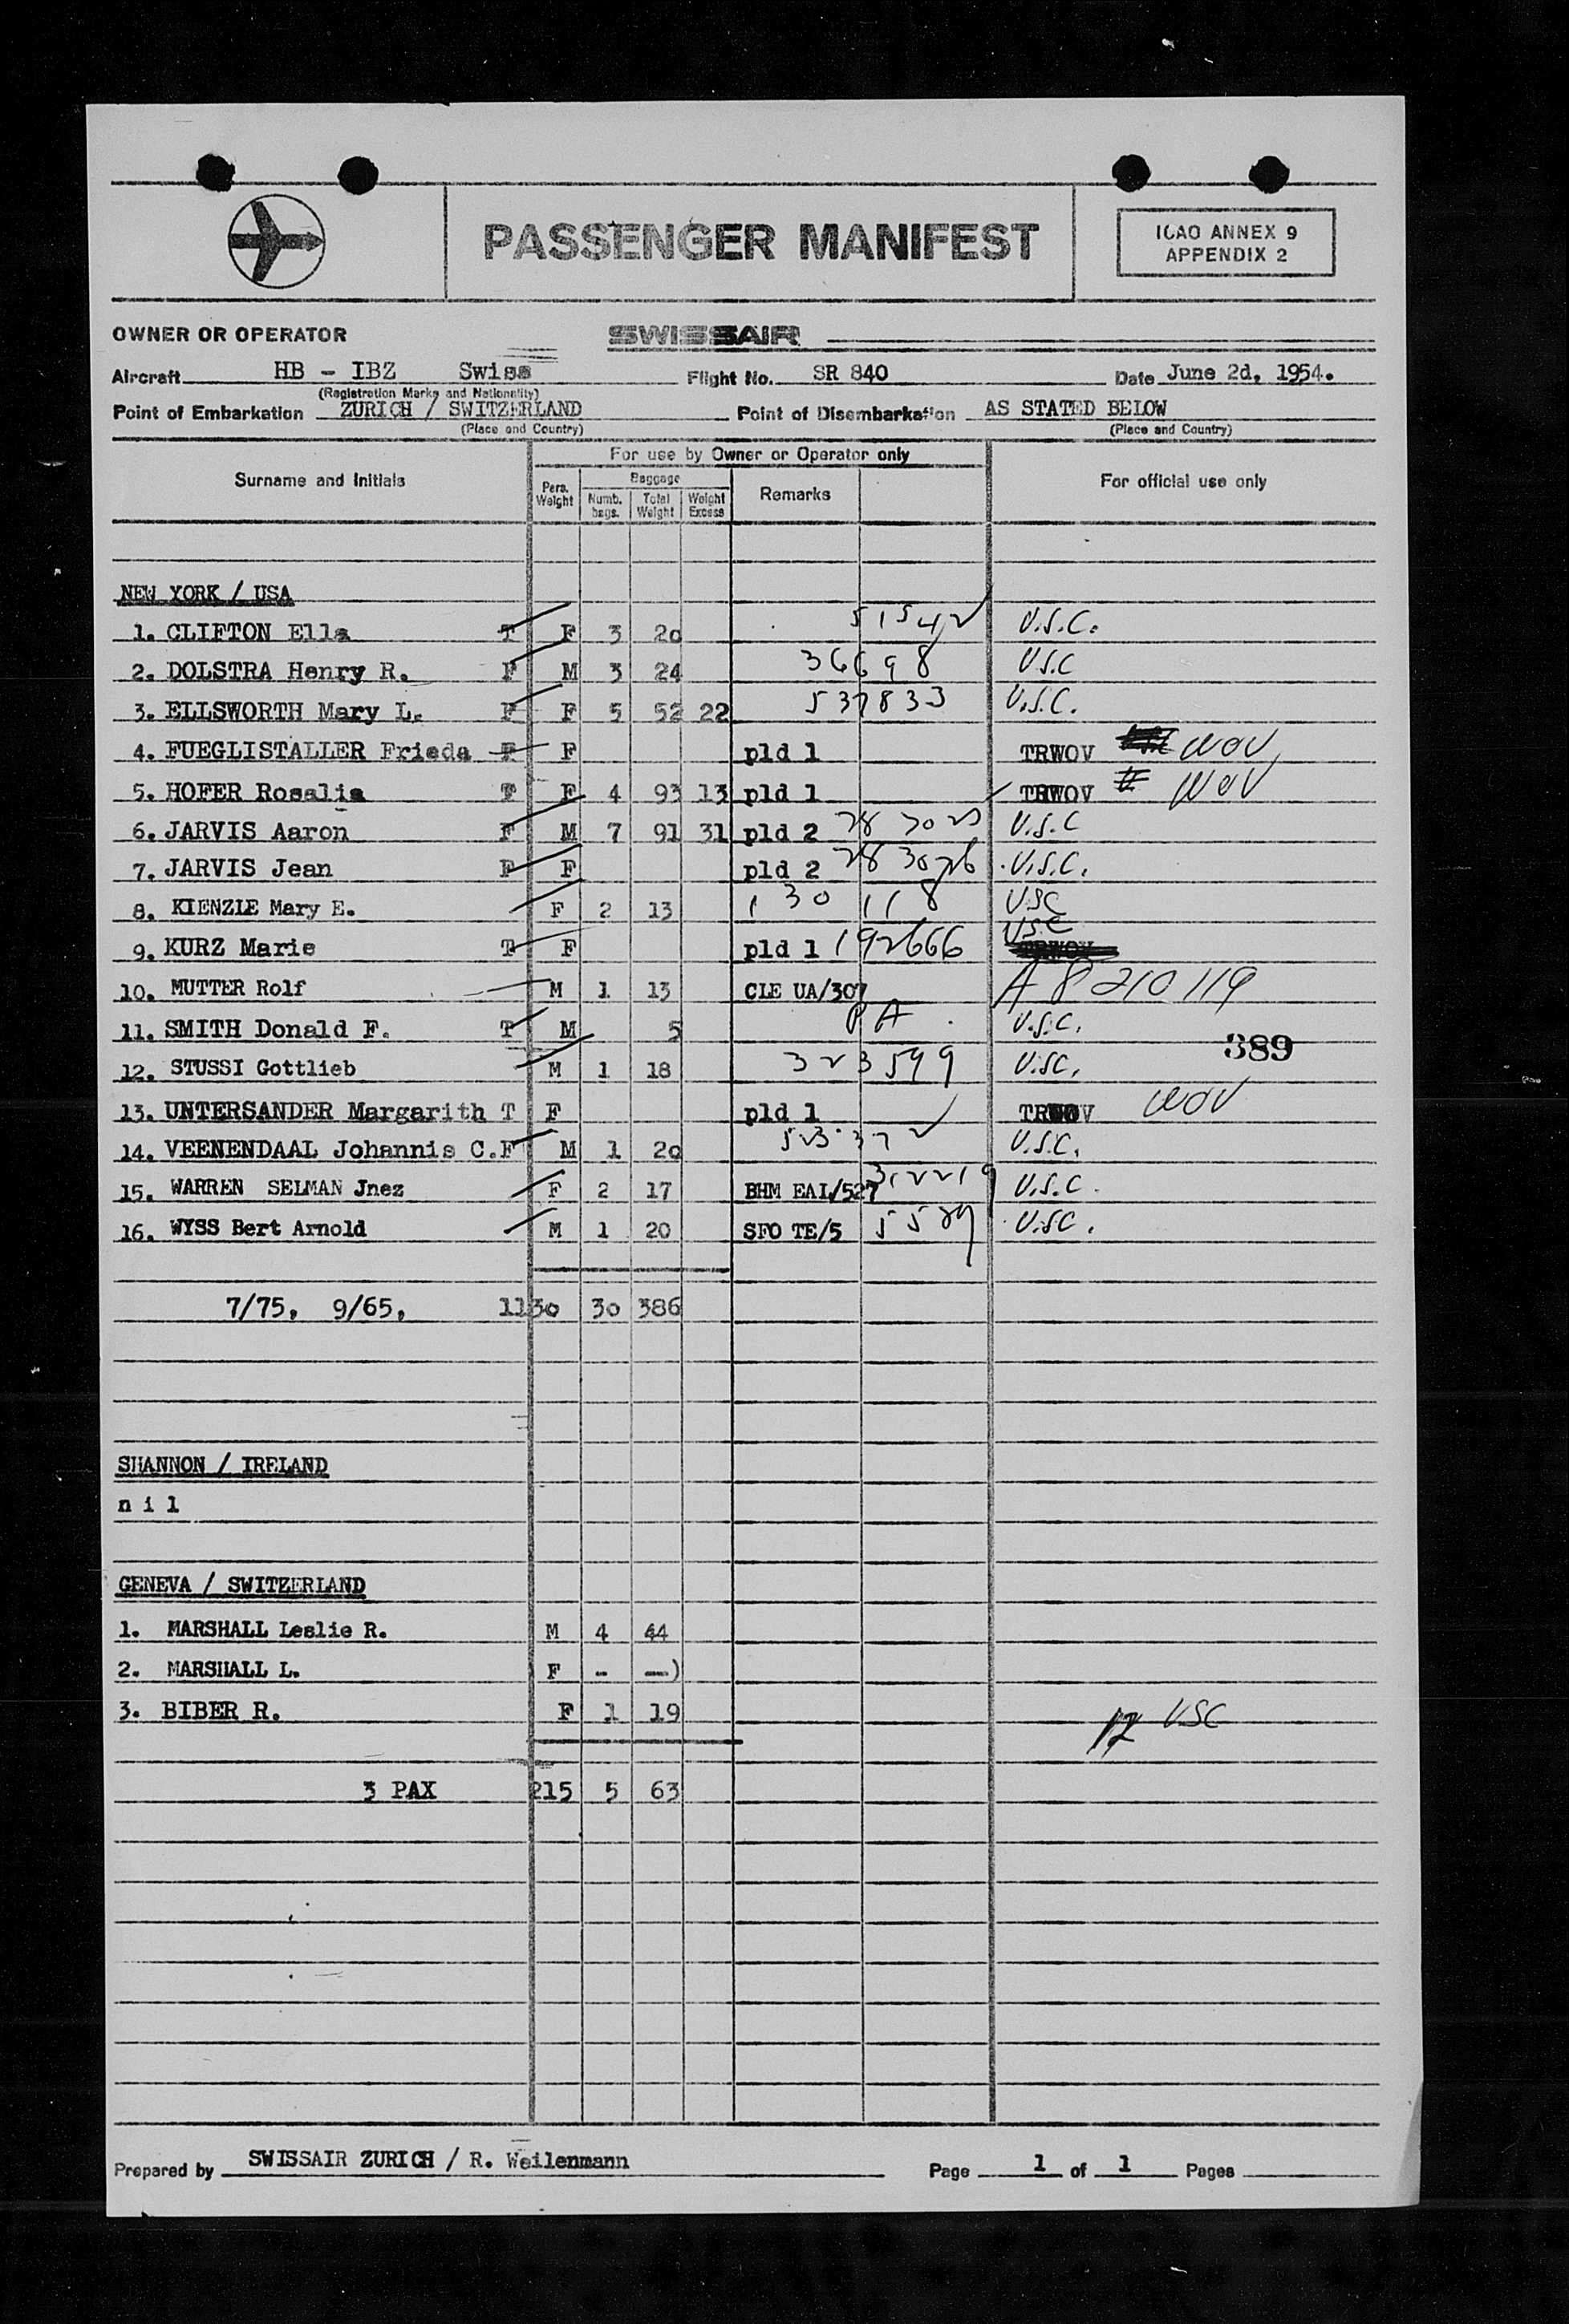 PASSENGER MANIFEST
ICAO ANNEX 9
APPENDIX 2
OWNER OR OPERATOR SWISSAIR
Aircraft HB - IBZ Swiss Flight No. SR 840 Date June 2d, 1954.
(Registration Marks and Nationality)
Point of Embarkation ZURICH / SWITZERLAND Point of Disembarkation AS STATED BELOW
(Place and Country) (Place and Country)
For use by Owner or Operator only
Surname and Initials Pers. Weight Baggage Remarks For official use only
Numb. bags. Total Weight Weight Excess
NEW YORK / USA
1. CLIFTON Ella T F 3 20 51542 U.S.C.
2. DOLSTRA Henry R. F M 3 24 36698 U.S.C
3. ELLSWORTH Mary L. F F 5 52 22 537833 U.S.C.
4. FUEGLISTALLER Frieda F F pld 1 TRWOV WOV
5. HOFER Rosalia T F 4 93 13 pld 1 TRWOV WOV
6. JARVIS Aaron F M 7 91 31 pld 2 U.S.C
7. JARVIS Jean F F pld 2 283026 U.S.C.
8. KIENZLE Mary E. F 2 13 130118 USC
9. KURZ Marie T F pld 1 192666 USC
10. MUTTER Rolf M 1 13 CLE UA/307 A8210119
11. SMITH Donald F. T M 5 PA. U.S.C.
389
12. STUSSI Gottlieb M 1 18 323599 U.SC.
13. UNTERSANDER Margarith T F pld 1 TRWOV WOV
14. VEENENDAAL Johannis C. F M 1 20 U.S.C.
15. WARREN SELMAN Jnez F 2 17 BHM EAL/527 U.S.C.
16. WYSS Bert Arnold M 1 20 SFO TE/5 U.SC.
7/75, 9/65, 1130 30 386
SHANNON / IRELAND
n i l
GENEVA / SWITZERLAND
1. MARSHALL Leslie R. M 4 44
2. MARSHALL L. F - —)
3. BIBER R. F 1 19
12 USC
3 PAX 215 5 63
Prepared by SWISSAIR ZURICH / R. Weilenmann Page 1 of 1 Pages